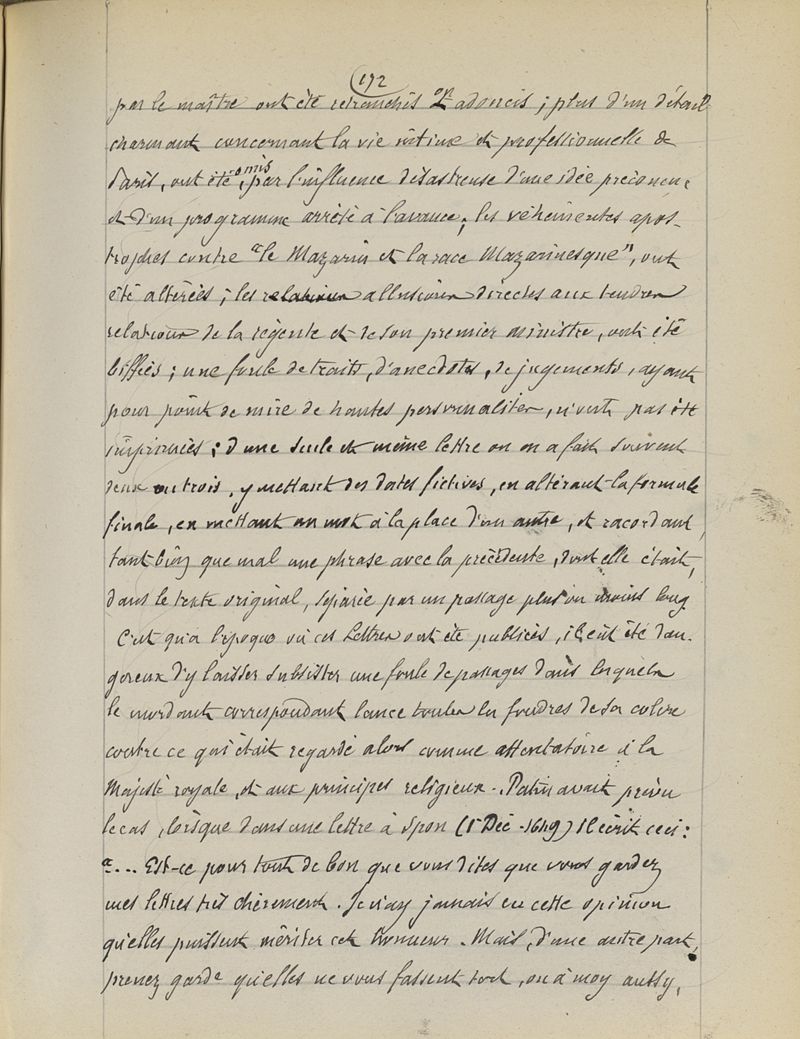 172
par le maître ont été retranchés ou adoucis ; plus d'un détail
charmant concernant la vie intime et professionnelle de
Paris, ont été omis, par l'influence désastreuse d'une idée préconçue
et d'un programme arrêté à l'avance ; les véhémentes apos-
trophes contre "le Mazarin et la race Mazarinesque", ont
été altérées ; les relations allusions directes aux tendres
relations de la régente et de son premier ministre, ont été
biffées ; une foule de traits, d'anecdotes, de jugements, ayant
pour point de mire de hautes personnalités, n'ont pas été
imprimés ; d'une seule et même lettre on en a fait souvent
deux ou trois, y mettant des dates fictives, en altérant la formule
finale, en mettant un mot à la place d'un autre, et racordant,
tant bien que mal une phrase avec la précédente, dont elle était,
dans le texte original, séparée par un passage plus ou moins long.
C'est qu'à l'époque où ces Lettres ont été publiées, il eût été dan-
gereux d'y laisser subsister une foule de passages dans lesquels
le mordant correspondant lance toutes les foudres de sa colère
contre ce qui était regardé alors comme attentatoire à la
Majesté royale, et aux principes religieux. Patin avait prévu
le cas, lorsque dans une lettre à Spon (1 Déc. 1649) il écrit ceci :
"... Est-ce pour tout de bon que vous dites que vous gardez
mes lettres très chèrement. Je n'ay jamais eu cette opinion
qu'elles puissent mériter cet honneur. Mais, d'une autre part,
prenez garde qu'elles ne vous fassent tort, ou à moy aussy,